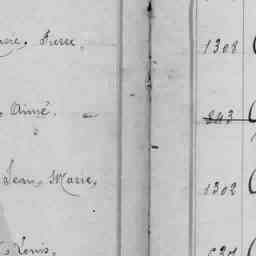 Pierre. 1308
Aimé. 843
Jean Marie, 1302
Louis,